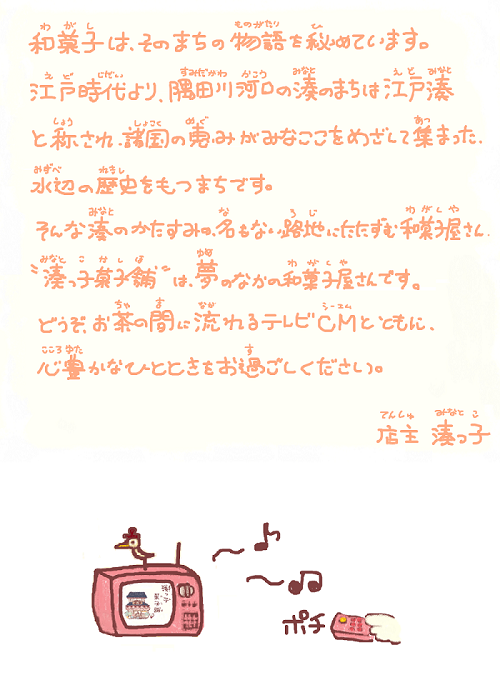 和菓子は、そのまちの物語を秘めています。
江戸時代より、隅田川河口の湊のまちは江戸湊
と称され、諸国の恵みがみなここをめざして集まった、
水辺の歴史をもつまちです。
そんな湊のかたすみの、名もない路地にたたずむ和菓子屋さん、
"湊っ子菓子舗"は、夢のなかの和菓子屋さんです。
どうぞ、お茶の間に流れるテレビCMとともに、
心豊かなひとときをお過ごしください。
店主 湊っ子
ポチ